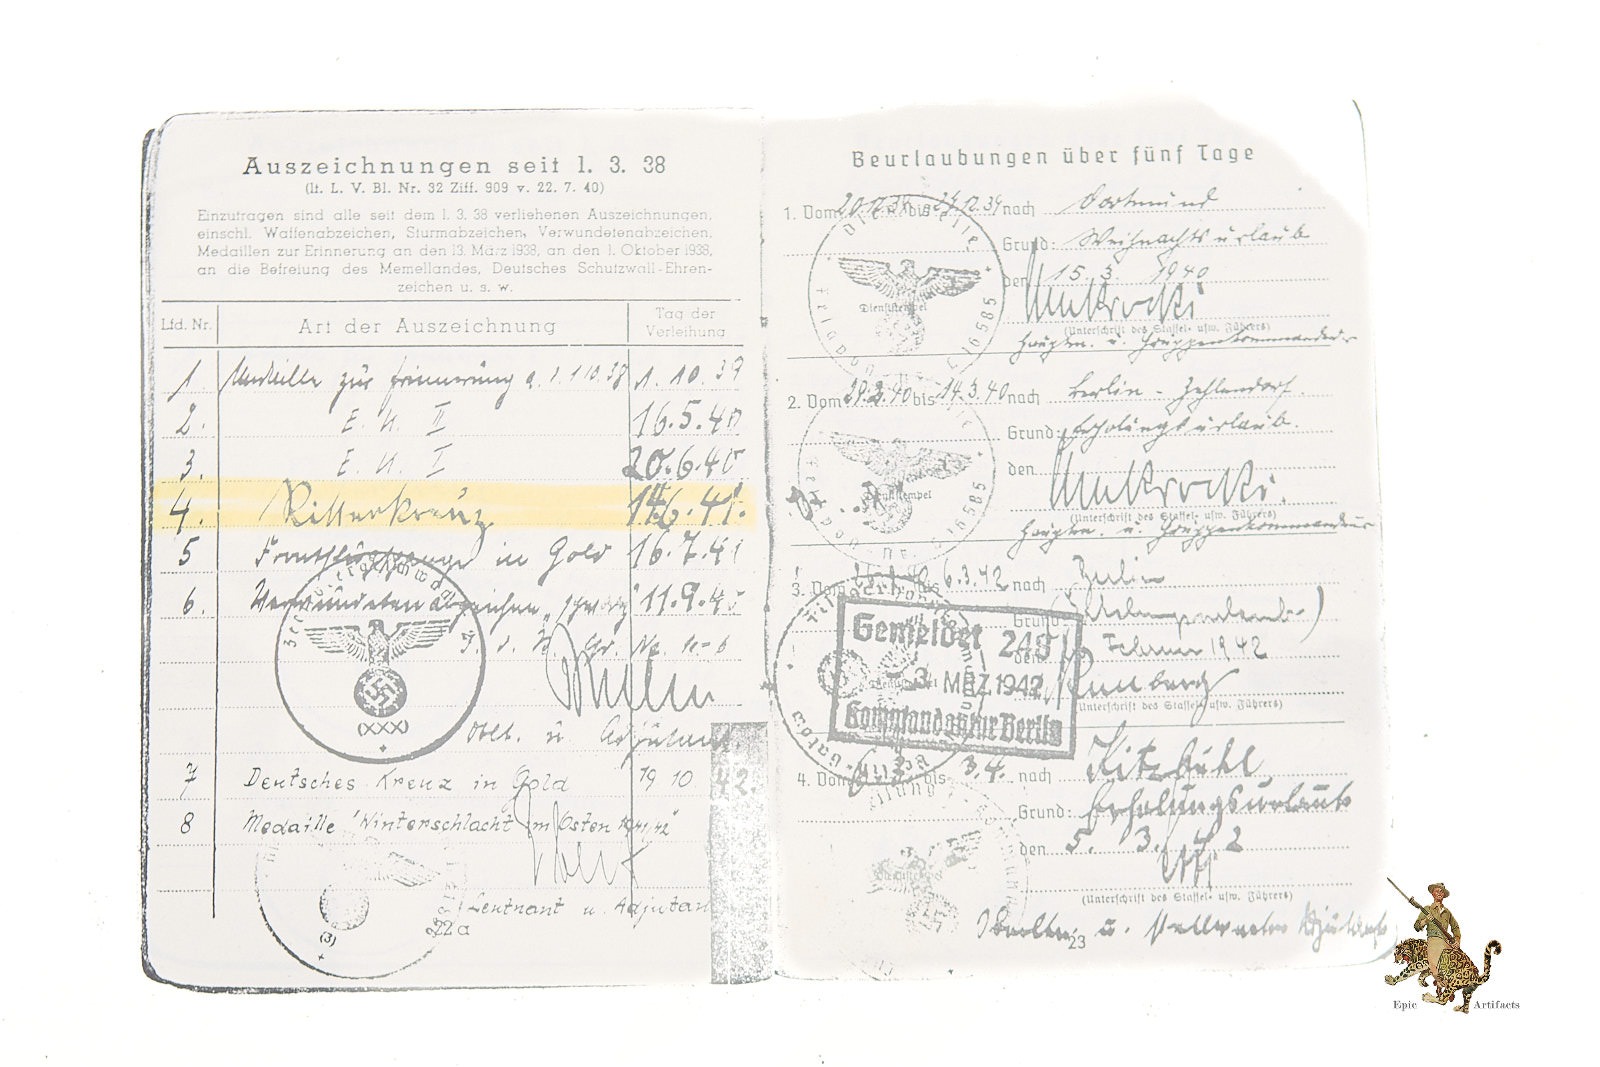 Auszeichnungen seit 1. 3. 38
(lt. L. V. Bl. Nr. 32 Ziff. 909 v. 22. 7. 40)
Einzutragen sind alle seit dem 1. 3. 38 verliehenen Auszeichnungen,
einschl. Waffenabzeichen, Sturmabzeichen, Verwundetenabzeichen,
Medaillen zur Erinnerung an den 13. März 1938, an den 1. Oktober 1938,
an die Befreiung des Memellandes, Deutsches Schutzwall-Ehren-
zeichen u. s. w.
Lfd. Nr. Art der Auszeichnung Tag der Verleihung
1. Medaille zur Erinnerung a. d. 1.10.38 1.10.39
2. E. K. II 16.5.40
3. E. K. I 20.6.40
4. Ritterkreuz 14.6.41.
5 Frontflugspange in Gold 16.7.41
6. Verwundetenabzeichen "schwarz" 11.9.
Oblt. u. Adjutant
7 Deutsches Kreuz in Gold 19 10 42
8 Medaille "Winterschlacht im Osten 1941/42"
Leutnant u. Adjutant
22a
(XXX)
(3)
Beurlaubungen über fünf Tage
1. Vom 20.12.39 bis 27.12.39 nach Dortmund
Grund: Weihnachtsurlaub
den 15. 3. 1940
(Unterschrift des Staffel- usw. Führers)
Hauptm. u. Gruppenkommandeur
Dienststelle
Feldpost Nr. L 16585
Dienststempel
2. Vom bis 14.3.40 nach Berlin - Zehlendorf.
Grund: Erholungsurlaub.
den
(Unterschrift des Staffel- usw. Führers)
Hauptm. u. Gruppenkommandeur
Dienststempel
3. Vom 6.3.42 nach Berlin
Grund:
den Februar 1942
(Unterschrift des Staffel- usw. Führers)
Gemeldet 248
3. MRZ. 1942
Kommandantur Berlin
4. Vom 6.3. bis 3.4. nach Kitzbühl
Grund: Erholungsurlaub
den 5. 3. 42
(Unterschrift des Staffel- usw. Führers)
Dienststempel
u. Adjutant
23
Epic Artifacts